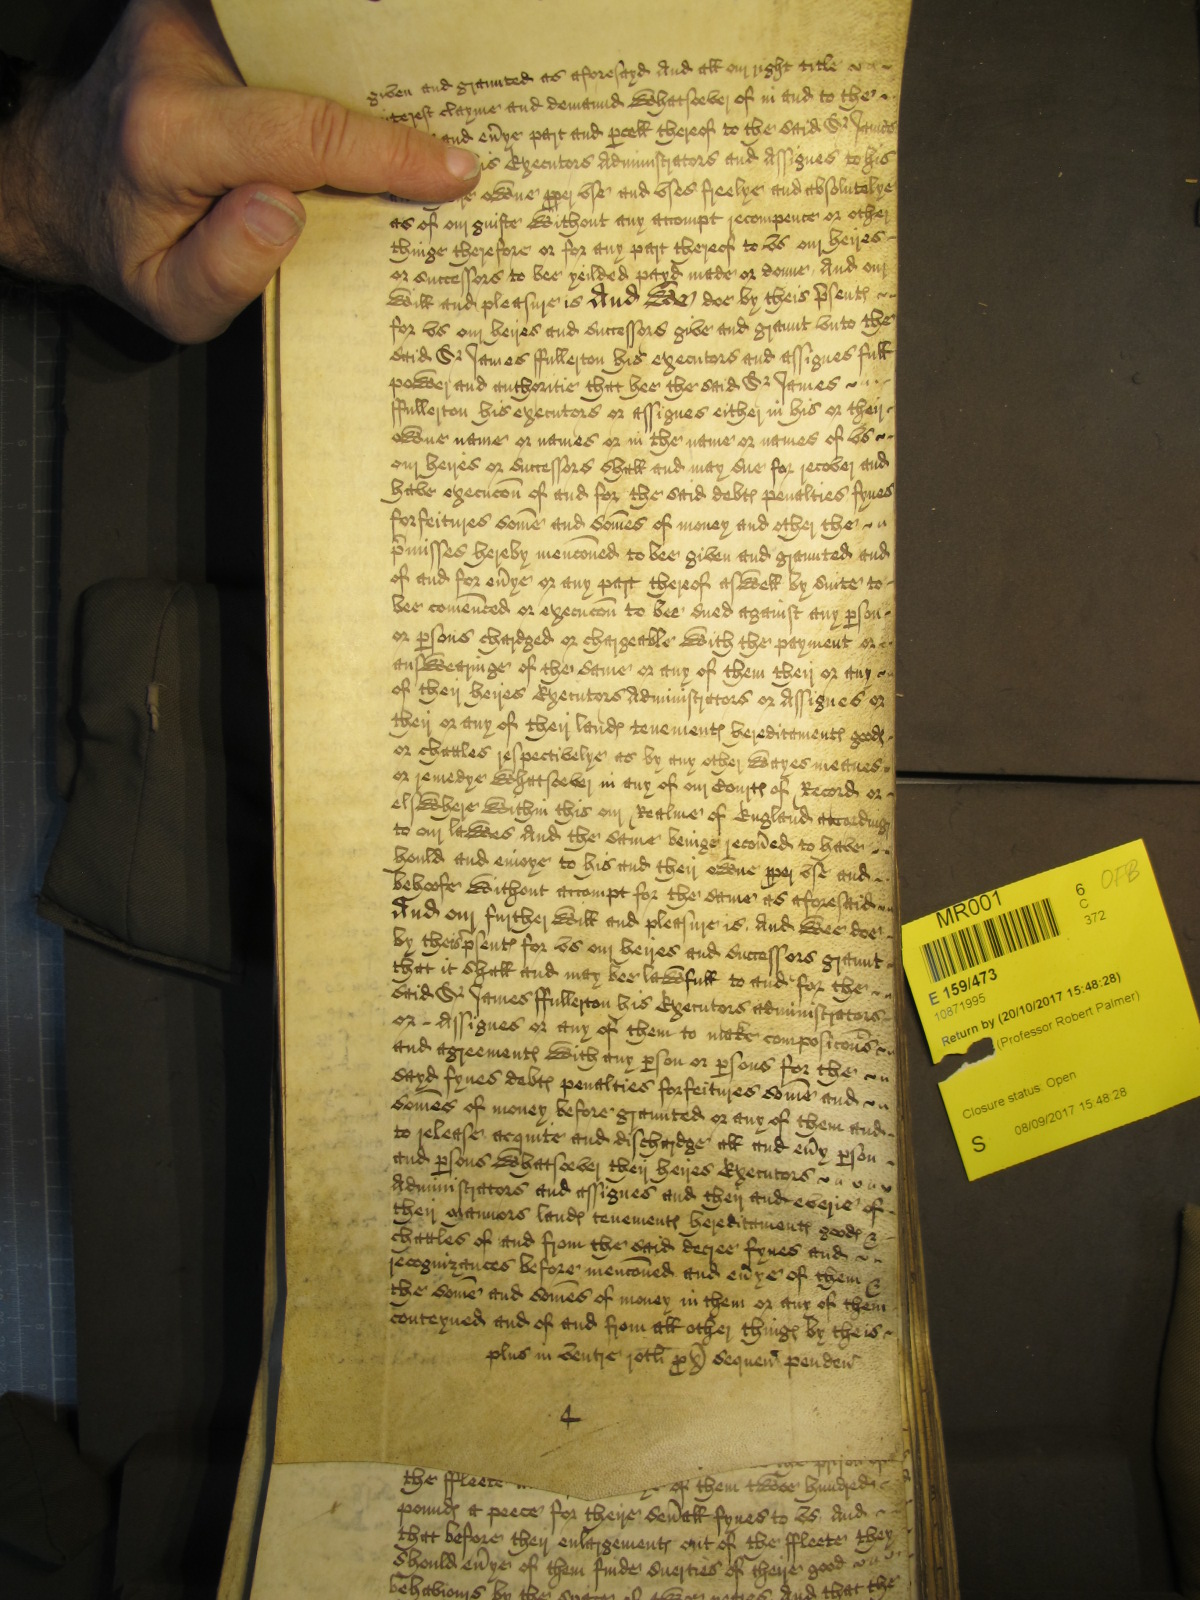 given and graunted as aforesayd And all our right title
terest clayme and demaund Whatsoever of in and to the
and eu'ye part and p'cell thereof to the said Sr James
his Executors Administrators and Assignes to his
owne pper vse and vses freelye and absolutelye
as of our guifte Without any accompt recompence or other
thinge therefore or for any part thereof to vs our heires
or successors to bee yeilded payd made or donne And our
Will and pleasure is And Wee doe by theis p'sents
for vs our heires and successors give and graunt vnto the
said Sr James ffullerton his executors and assignes full
power and authoritie that hee the said Sr James
ffullerton his executors or assignes either in his or their
owne name or names or in the name or names of vs
our heires or successors shall and may sue for recover and
have execucon of and for the said debts penalties fynes
forfeitures some and somes of money and other the
p'misses hereby menconed to bee given and graunted and
of and for eu'ye or any part thereof aswell by suite to
bee comenced or execucon to bee sued against any p'son
or p'sons chardged or chargeable With the payment or
answearinge of the same or any of them their or any
of their heires Executors Administrators or Assignes or
their or any of their lands tenements hereditaments goods
or chattles respectivelye as by any other Wayes meanes
or remedye Whatsoever in any of our Courts of Record or
elswhere Within this our Realme of England accordinge
to our lawes And the same beinge recou'ed to have
hould and enioye to his and their owne pper vse and
behoofe Without accompt for the same as aforesaid
And our further Will and pleasure is And Wee doe
by theis p'sents for vs our heires and successors graunt
that it shall and may bee lawfull to and for the
said Sr James ffullerton his Executors administrators
or Assignes or any of them to make composicons
and agreements With any p'son or p'sons for the
sayd fynes debts penalties forfeitures some and
somes of money before graunted or any of them and
to release acquite and dischardge all and eu'y p'son
and p'sons Whatsoever their heires Executors
Administrators and assignes and their and everie of
their mannors lands tenements hereditaments goods &
chattles of and from the said decree fynes and
recognizances before menconed and eu'ye of them &
the some and somes of money in them or any of them
conteyned and of and from all other things by theis
plus in ventre rotli px sequen penden
4
the ffleete of them twoe hundred
pounds a peece for theire seu'all fynes to vs And
that before their enlargements out of the ffleete they
should eu'ye of them finde suerties of theire good
behaviours by the space of And that the
MR001
6
C
372
OFB
E 159/473
10871995
Return by (20/10/2017 15:48:28)
(Professor Robert Palmer)
Closure status: Open
S 08/09/2017 15:48:28